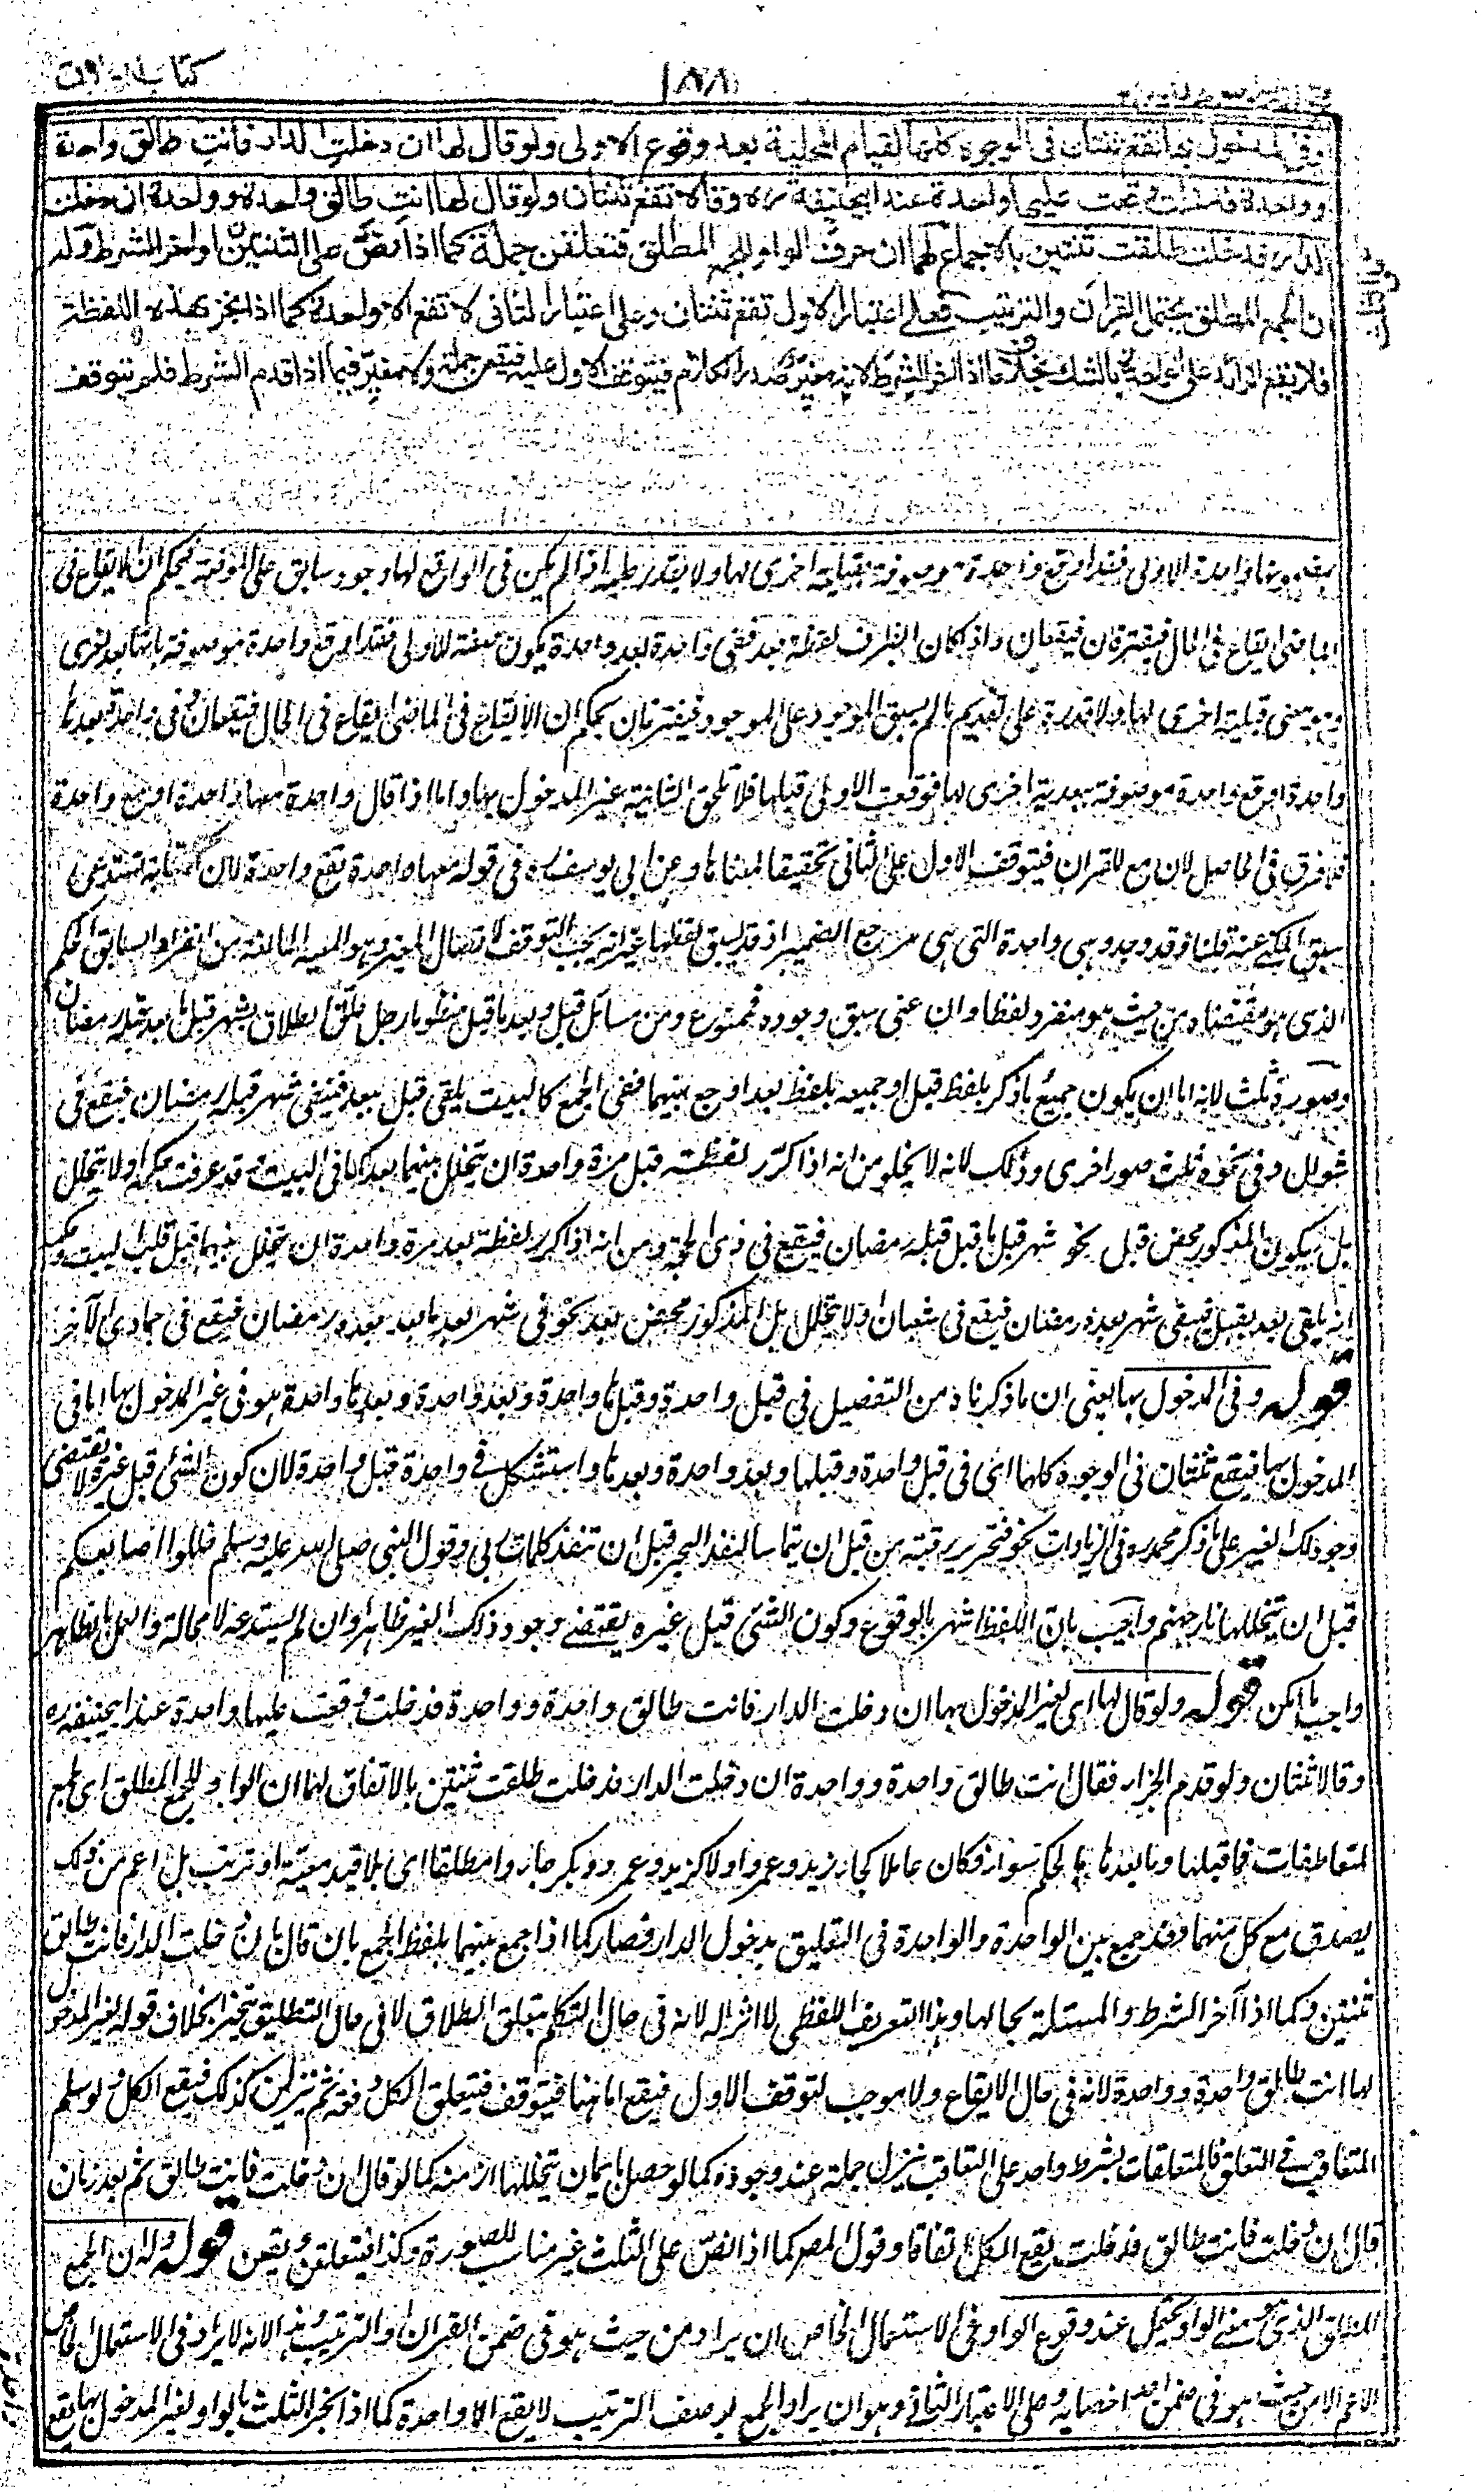 كتاب الطلاق
وفي المدخول بها تقع ثنتان في الوجوه كلها لقيام المحلية بعد وقوع الاولى ولو قال لها ان دخلت الدار فانت طالق واحدة
وواحدة فدخلت وقعت عليها واحدة عند ابيحنيفة ره وقالا تقع ثنتان ولو قال لها انت طالق واحدة وواحدة ان دخلت
الدار فدخلت طلقت ثنتين بالاجماع لهما ان حرف الواو للجمع المطلق فتعلقن جملة كما اذا نص على الثنتين او اخر الشرط وله
ان الجمع المطلق يحتمل القران والترتيب فعلى اعتبار الاول تقع ثنتان وعلى اعتبار الثاني لا تقع الا واحدة كما اذا نجز بهذه اللفظة
فلا يقع الزائد على الواحدة بالشك بخلاف ما اذا اخر الشرط لانه مغير صدر الكلام فيتوقف الاول عليه فيقعن جملة ولا مغير فيما اذا قدم الشرط فلم يتوقف
الواحدة الاولى فقد اوقع واحدة موصوفة بقبلية اخرى لها ولا يقدر عليه اذا لم يكن في الواقع لها وجود سابق على الموقعة فيحكم ان الايقاع في
الماضي ايقاع في الحال فيقترنان فيقعان واذا كان الظرف لفظة بعد ففي واحدة بعد واحدة يكون صفة للاولى فقد اوقع واحدة موصوفة بانها بعد اخرى
وهو معنى قبلية اخرى لها ولا قدرة على تقديم ما لم يسبق الوجود على الموجود فيقترنان بحكم ان الايقاع في الماضي ايقاع في الحال فيقعان وفي واحدة بعدها
واحدة اوقع واحدة موصوفة ببعدية اخرى لها فوقعت الاولى قبلها فلا تلحق الثانية غير المدخول بها واما اذا قال واحدة معها واحدة او مع واحدة
فلا فرق في الحاصل لان مع للقران فيتوقف الاول على الثاني تحقيقا لمعناها وعن ابي يوسف ره في قوله معها واحدة تقع واحدة لان الكناية تستدعي
سبق المكنى عنه قلنا وقد وجد وهي واحدة التي هي مرجع الضمير اذ قد سبق لفظها غير انه يجب التوقف لاتصال المغير وهو المعية المانعة من انفراد السابق بالحكم
الذي هو مقتضاه من حيث هو منفرد لفظا وان عنى سبق وجوده فممنوع ومن مسائل قبل وبعد ما قيل منظوما رجل علق الطلاق بشهر قبل ما بعد قبله رمضان
وصوره ثلث لانه اما ان يكون جميع ما ذكر بلفظ قبل او جميعه بلفظ بعد او جمع بينهما ففي الجمع كالبيت يلقى قبل ببعد فيبقى شهر قبله رمضان فيقع في
شوال وفي نحوه ثلث صور اخرى وذلك لانه لا يخلو من انه اذا كرر لفظة قبل مرة واحدة ان يتخلل بينهما بعد كما في البيت وقد عرفت حكمه او لا يتخلل
بل يكون المذكور محض قبل نحو شهر قبل ما قبل قبله رمضان فيقع في ذي الحجة ومن انه اذا كرر لفظة بعد مرة واحدة ان يتخلل بينهما قبل قلب البيت وحكمه
انه يلقى بعد بقبل فيبقى شهر بعده رمضان فيقع في شعبان او لا يتخلل بل المذكور محض بعد نحو في شهر بعد ما بعد بعده رمضان فيقع في جمادى الآخر
قوله وفي المدخول بها يعني ان ما ذكرناه من التفصيل في قبل واحدة وقبلها واحدة وبعد واحدة وبعدها واحدة هو في غير المدخول بها اما في
المدخول بها فيقع ثنتان في الوجوه كلها اي في قبل واحدة وقبلها وبعد واحدة وبعدها واستشكل في واحدة قبل واحدة لان كون الشئ قبل غيره لا يقتضي
وجود ذلك الغير على ما ذكر محمد ره في الزيادات نحو فتحرير رقبة من قبل ان يتماسا لنفد البحر قبل ان تنفد كلمات ربي وقول النبي صلى الله عليه وسلم خللوا اصابعكم
قبل ان يتخللها نار جهنم واجيب بان اللفظ اشهر بالوقوع وكون الشئ قبل غيره يقتضي وجود ذلك الغير ظاهرا وان لم يستدعه لا محالة والعمل بالظاهر
واجب ما امكن قوله ولو قال لها اي لغير المدخول بها ان دخلت الدار فانت طالق واحدة وواحدة فدخلت وقعت عليها واحدة عند ابيحنيفة ره
وقالا ثنتان ولو قدم الجزاء فقال انت طالق واحدة وواحدة ان دخلت الدار فدخلت طلقت ثنتين بالاتفاق لهما ان الواو للجمع المطلق اي لجمع
المتعاطفات فما قبلها وما بعدها بالحكم سواء كان عاملا كجاء زيد وعمرو او لا كزيد وعمرو وبكر جاءوا مطلقا اي بلا قيد معية او ترتيب بل اعم من ذلك
يصدق مع كل منهما وقد جمع بين الواحدة والواحدة في التعليق بدخول الدار فصار كما اذا جمع بينهما بلفظ الجمع بان قال ان دخلت الدار فانت طالق
ثنتين وكما اذا آخر الشرط والمسئلة بحالها وهذا التعريف اللفظي لا اثر له لانه في حال التكلم بتعلق الطلاق لا في حال التطليق تنجيزا بخلاف قوله لغير المدخول
لها انت طالق واحدة وواحدة لانه في حال الايقاع ولا موجب لتوقف الاول فيقع اما هنا فيتوقف فيتعلق الكل دفعة ثم ينزلن كذلك فيقع الكل ولو سلم
التعاقب في التعلق فالمتعلقات بشرط واحد على التعاقب ينزل جملة عند وجوده كما لو حصل بايمان يتخللها ازمنة كما لو قال ان دخلت فانت طالق ثم بعد زمان
قال ان دخلت فانت طالق فدخلت يقع الكل اتفاقا وقول المصر كما اذا نص على الثلث غير مناسب للصورة وكذا فيتعلقن ويقعن قوله وله ان الجمع
المطلق الذي هو معنى الواو يحتمل عند وقوع الواو في الاستعمال الخاص ان يراد من حيث هو في ضمن القران والترتيب وهذا لانه لا يراد في الاستعمال الخاص
الاعم الا من حيث هو في ضمن احد اخصاءيه وعلى الاعتبار الثاني وهو ان يراد الجمع بوصف الترتيب لا يقع الا واحدة كما اذا نجز الثلث بالواو لغير المدخول بها يقع